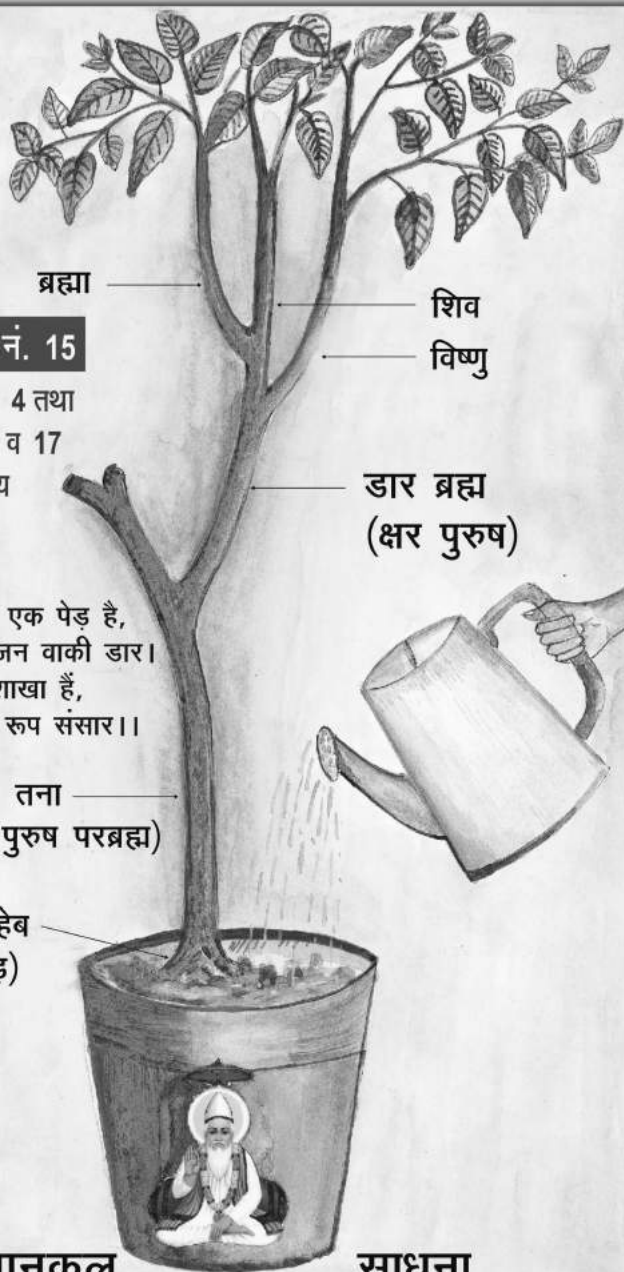 ब्रह्मा
शिव
नं. 15
विष्णु
4 तथा
व 17
डार ब्रह्म
(क्षर पुरुष)
एक पेड़ है,
वाकी डार।
हैं,
रूप संसार।।
तना
पुरुष परब्रह्म)
साधना